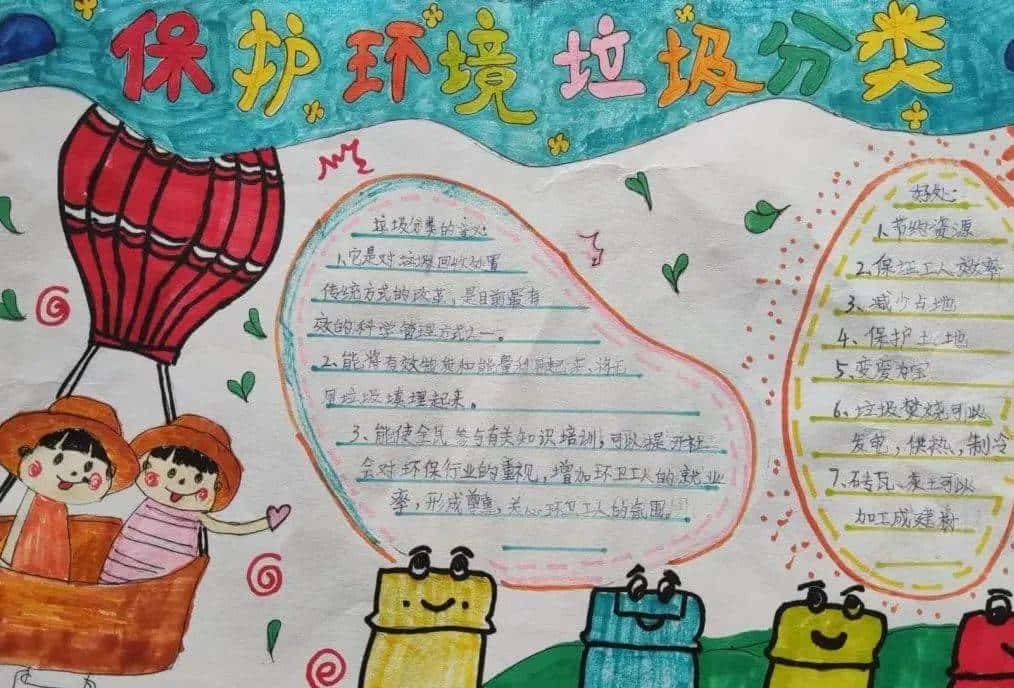 保护环境 垃圾分类
垃圾分类的意义:
1、它是对垃圾回收处置
传统方式的改革,是目前最有
效的科学管理方式之一。
2、能将有效的
垃圾填埋起来。
3、能使全民参与有关知识培训,可以提升社
会对环保行业的重视,增加环卫工人的就业
率,形成尊重,关心环卫工人的氛围。
好处:
1、节约资源
2、保证工人效率
3、减少占地
4、保护土地
5、变废为宝
6、垃圾焚烧可以
发电,供热,制冷
7、砖瓦、灰土可以
加工成建材